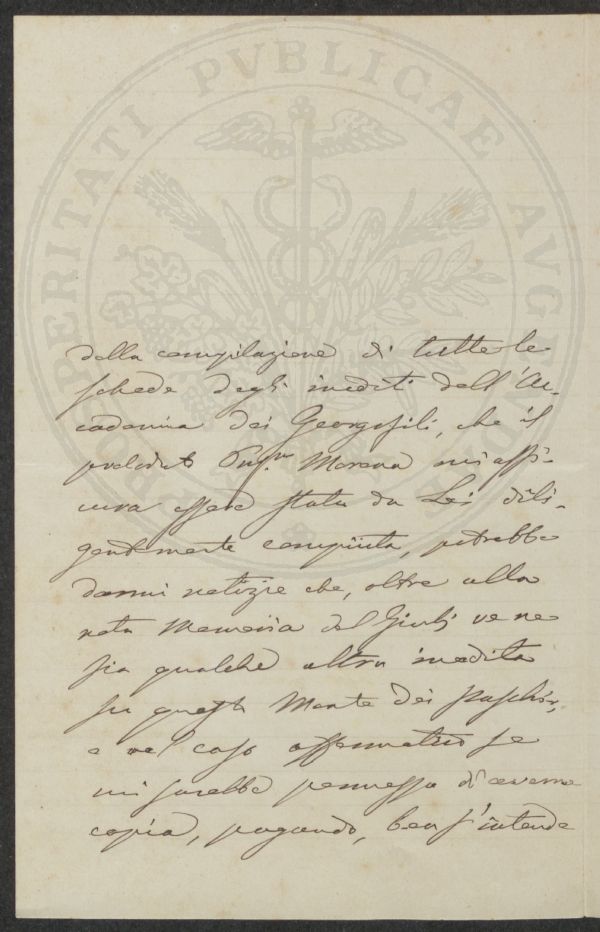 PROSPERITATI PVBLICAE AVGENDAE
della compilazione di tutte le
schede degli inediti dell'Ac-
cademia dei Georgofili, che il
prelodato Profre Morena mi assi-
cura essere stata da Lei dili-
gentemente compiuta, potrebbe
darmi notizie che, oltre alla
nota Memoria del Giulj ve ne
sia qualche altra inedita
su questo Monte dei Paschi,
e nel caso affermativo se
mi sarebbe permesso di averne
copia, pagando, ben s'intende